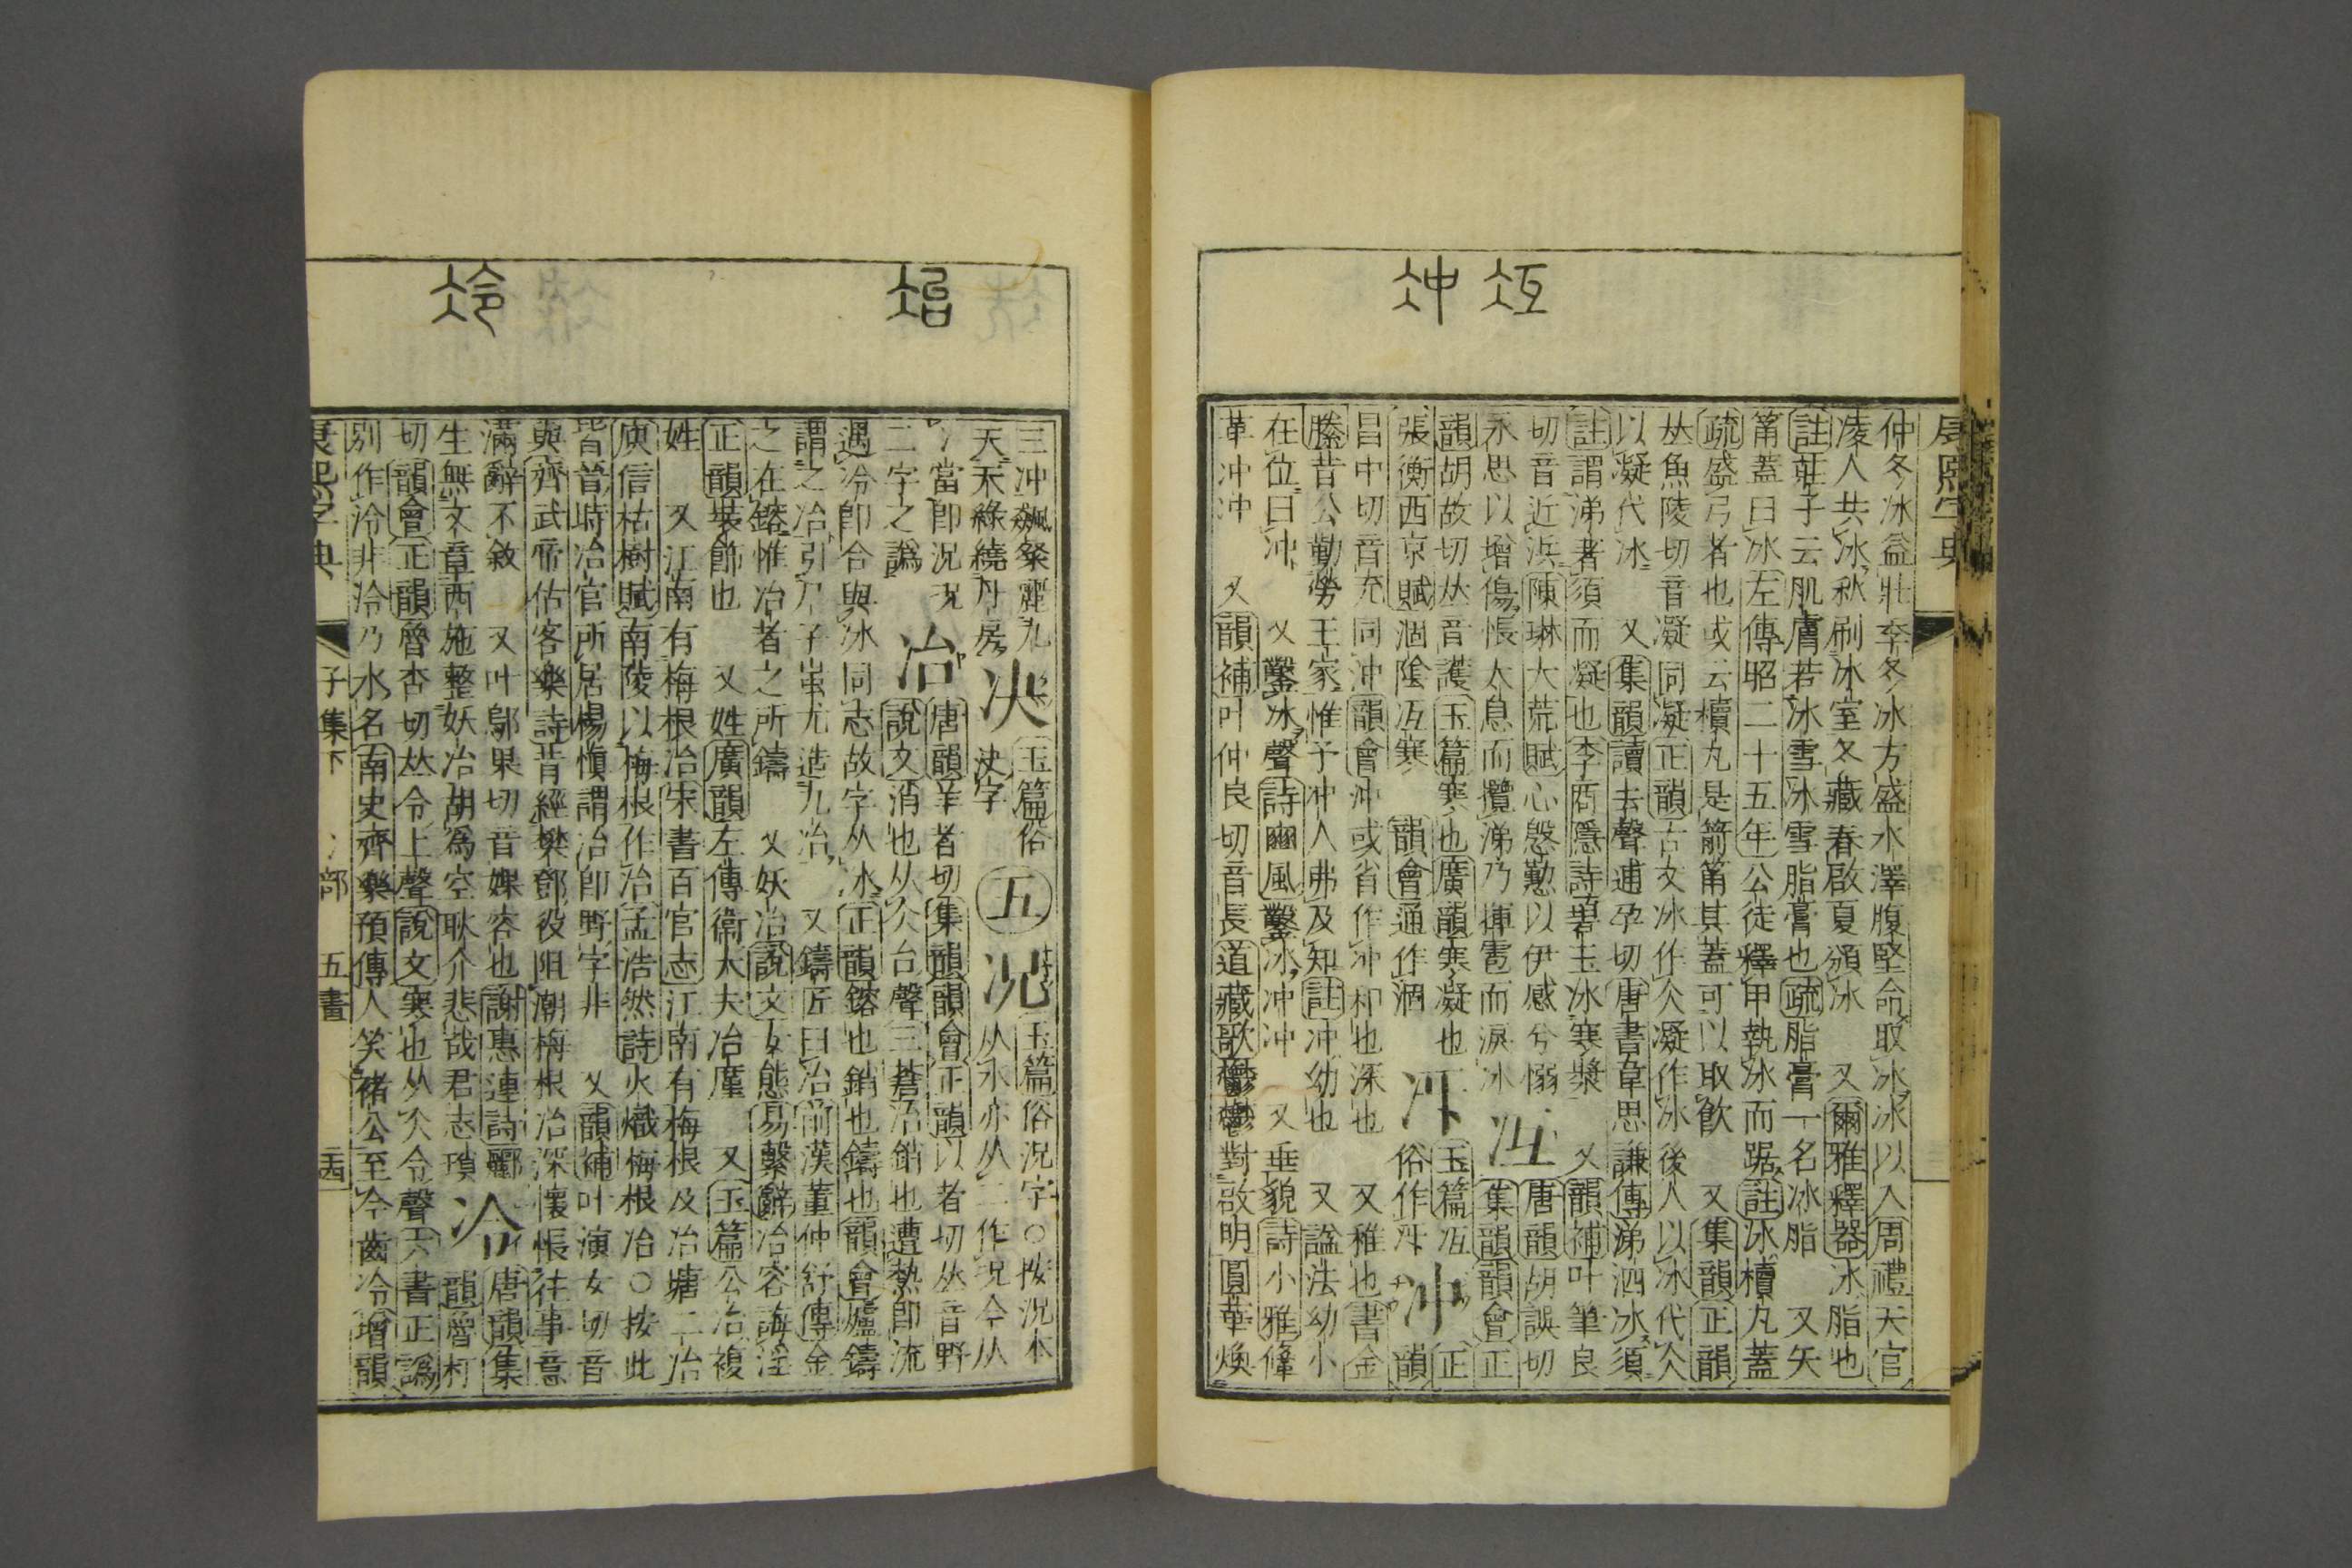 冱 冲
仲冬冰益壯季冬冰方盛水澤腹堅命取冰冰以入周禮天官
凌人共冰秋刷冰室冬藏春啟夏頒冰 又爾雅釋器冰脂也
註莊子云肌膚若冰雪冰雪脂膏也疏脂膏一名冰脂 又矢
筩蓋曰冰左傳昭二十五年公徒釋甲執冰而踞註冰櫝丸蓋
疏盛弓者也或云櫝丸是箭筩其蓋可以取飮 又集韻正韻
𠀤魚陵切音凝同凝正韻古文冰作仌凝作冰後人以冰代仌
以凝代冰 又集韻讀去聲逋孕切唐書韋思謙傳涕泗冰須
註謂涕著須而凝也李商隱詩碧玉冰寒漿 又韻補叶筆良
切音近浜陳琳大荒賦心慇懃以伊感兮慍
永思以增傷悵太息而攬涕乃揮雹而淚冰
冱
唐韻胡誤切
集韻韻會正
韻胡故切𠀤音護玉篇寒也廣韻寒凝也
張衡西京賦涸陰冱寒 韻會通作涸
冸
玉篇冱
俗作冸
冲
正
韻
昌中切音充同沖韻會沖或省作冲和也深也 又稚也書金
縢昔公勤勞王家惟予冲人弗及知註冲幼也 又諡法幼小
在位曰冲 又鑿冰聲詩豳風鑿冰冲冲 又垂貌詩小雅鞗
革冲冲 又韻補叶仲良切音長道藏歌鬱鬱對啟明圓華煥
康熙字典
冶 冷
三冲飆粲霄九
天天籟繞丹房
决
玉篇俗
決字
五
况
玉篇俗況字○按況本
从水亦从二作况今从
冫當卽況况
二字之譌
冶
唐韻羊者切集韻韻會正韻以者切𠀤音野
說文消也从仌台聲三蒼冶銷也遭熱卽流
遇冷卽合與冰同志故字从冰正韻鎔也銷也鑄也韻會爐鑄
謂之冶引尸子蚩尤造九冶 又鑄匠曰冶前漢董仲舒傳金
之在鎔惟冶者之所鑄 又妖冶說文女態易繫辭冶容誨淫
正韻裝飾也 又姓廣韻左傳衞大夫冶廑 又玉篇公冶複
姓 又江南有梅根冶宋書百官志江南有梅根及冶塘二冶
庾信枯樹賦南陵以梅根作冶孟浩然詩火熾梅根冶○按此
皆昔時冶官所居楊愼謂冶卽野字非 又韻補叶演女切音
與齊武帝估客樂詩昔經樊鄧役阻潮梅根冶深懷悵往事意
滿辭不敘 又叶鄔果切音婐容也謝惠連詩酈
生無文章西施整妖冶胡爲空耿介悲哉君志瑣
冷
唐韻集
韻魯打
切韻會正韻魯杏切𠀤令上聲說文寒也从仌令聲六書正譌
別作泠非泠乃水名南史齊樂預傳人笑褚公至今齒冷增韻
康熙字典 子集下 冫部 五畫